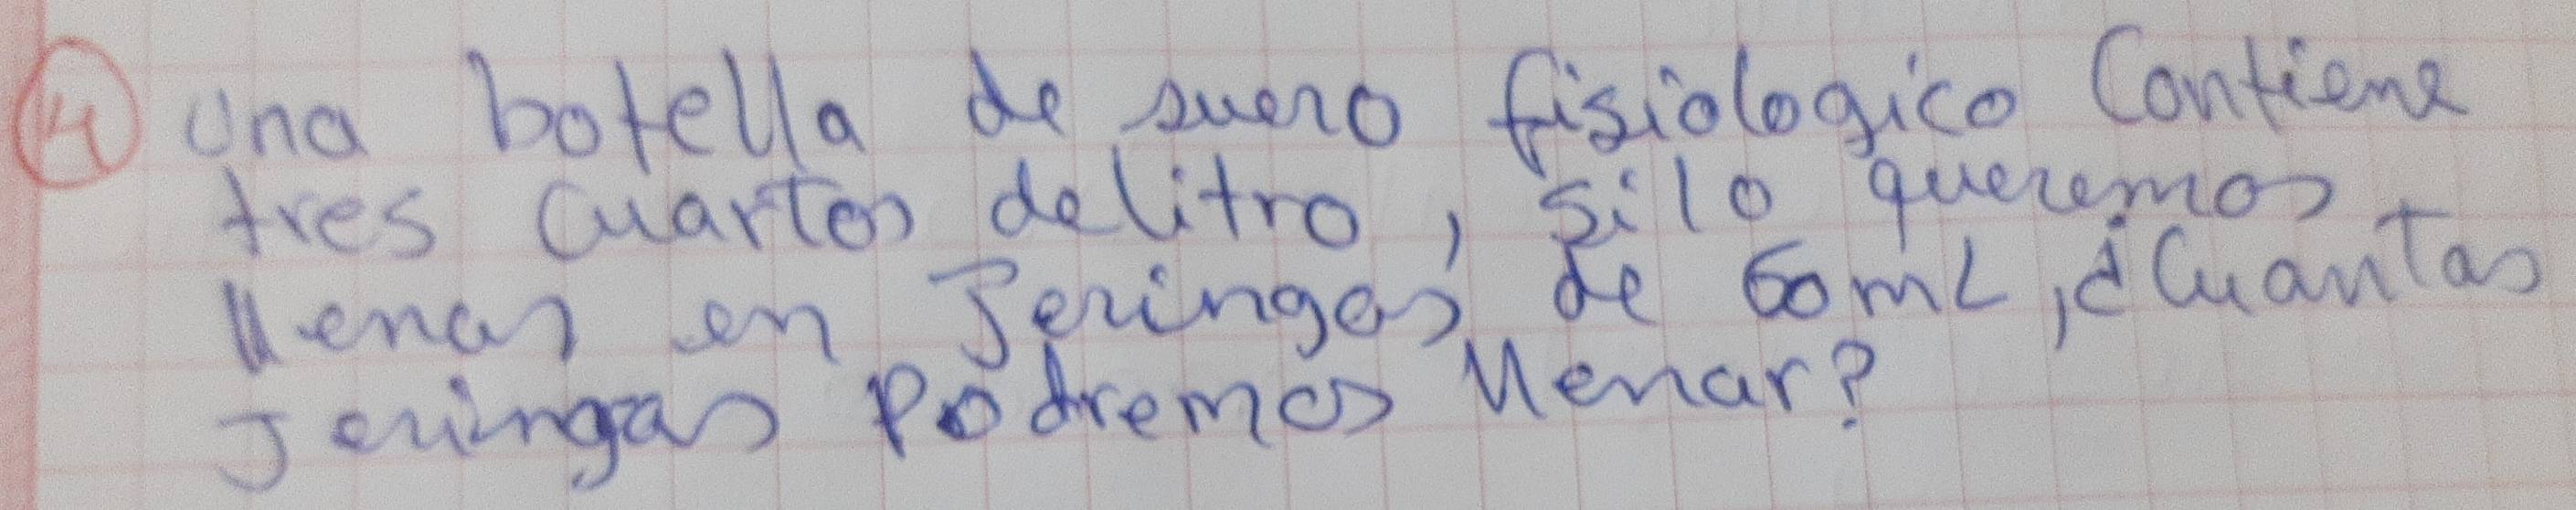 4 Una botella de suero fisiologico Contiene
tres Cuartos de litro, si lo queremos
llenar en Jeringas de 60 mL, ¿Cuantas
Jeringas Podremos llenar?